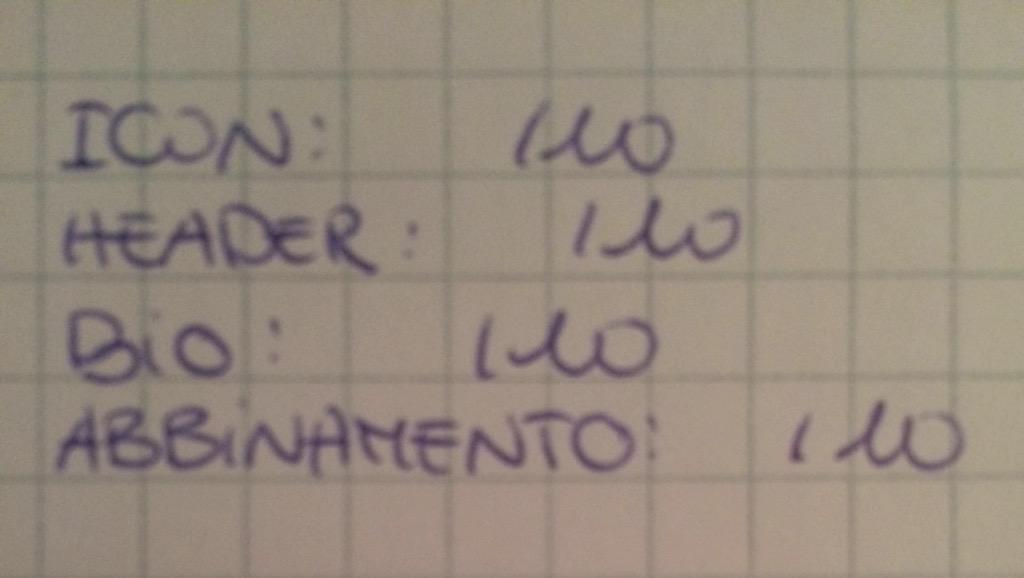 ICON: /10
HEADER: /10
BiO: /10
ABBiNAMENTO: /10